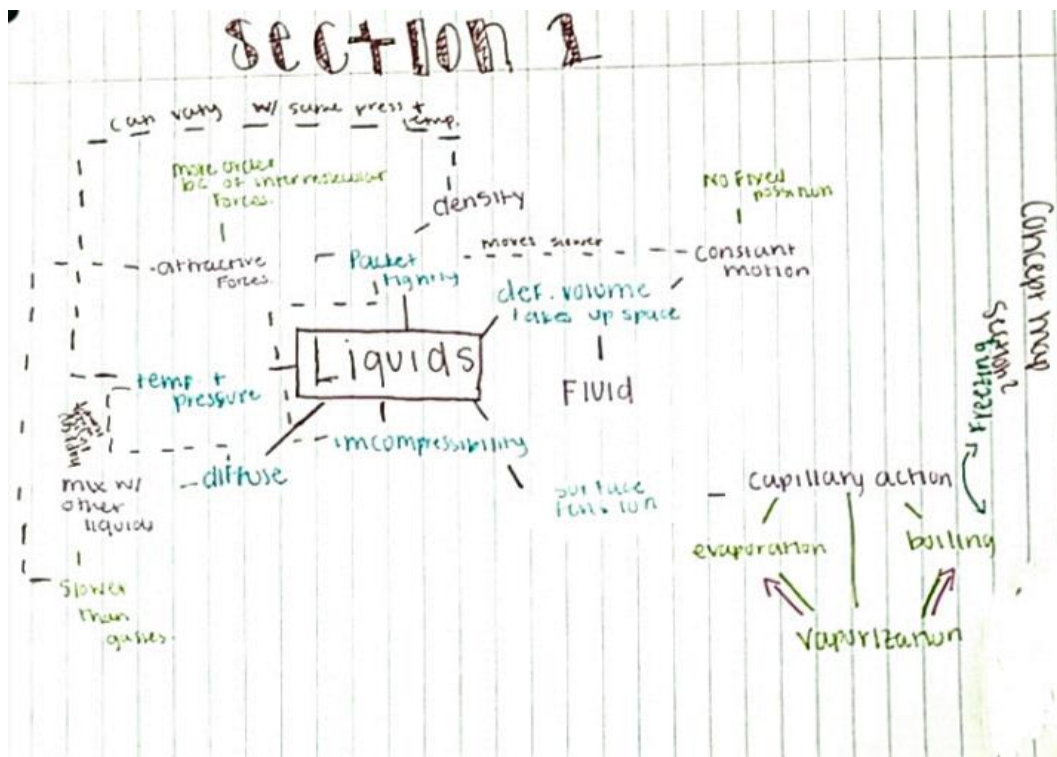 Section 1
can vary w/ same press + temp.
more order
bc of intermolecular
forces.
density
No Fixed
position
attractive
Forces.
Packet
tightly
moves slower
constant
motion
def. volume
takes up space
Liquids
Fluid
temp. +
pressure
imcompressibility
diffuse
mix w/
other
liquids
surface
tension
capillary action
evaporation
boiling
vaporization
Freezing
slower
than
gasses.
Concept Map
Section 2